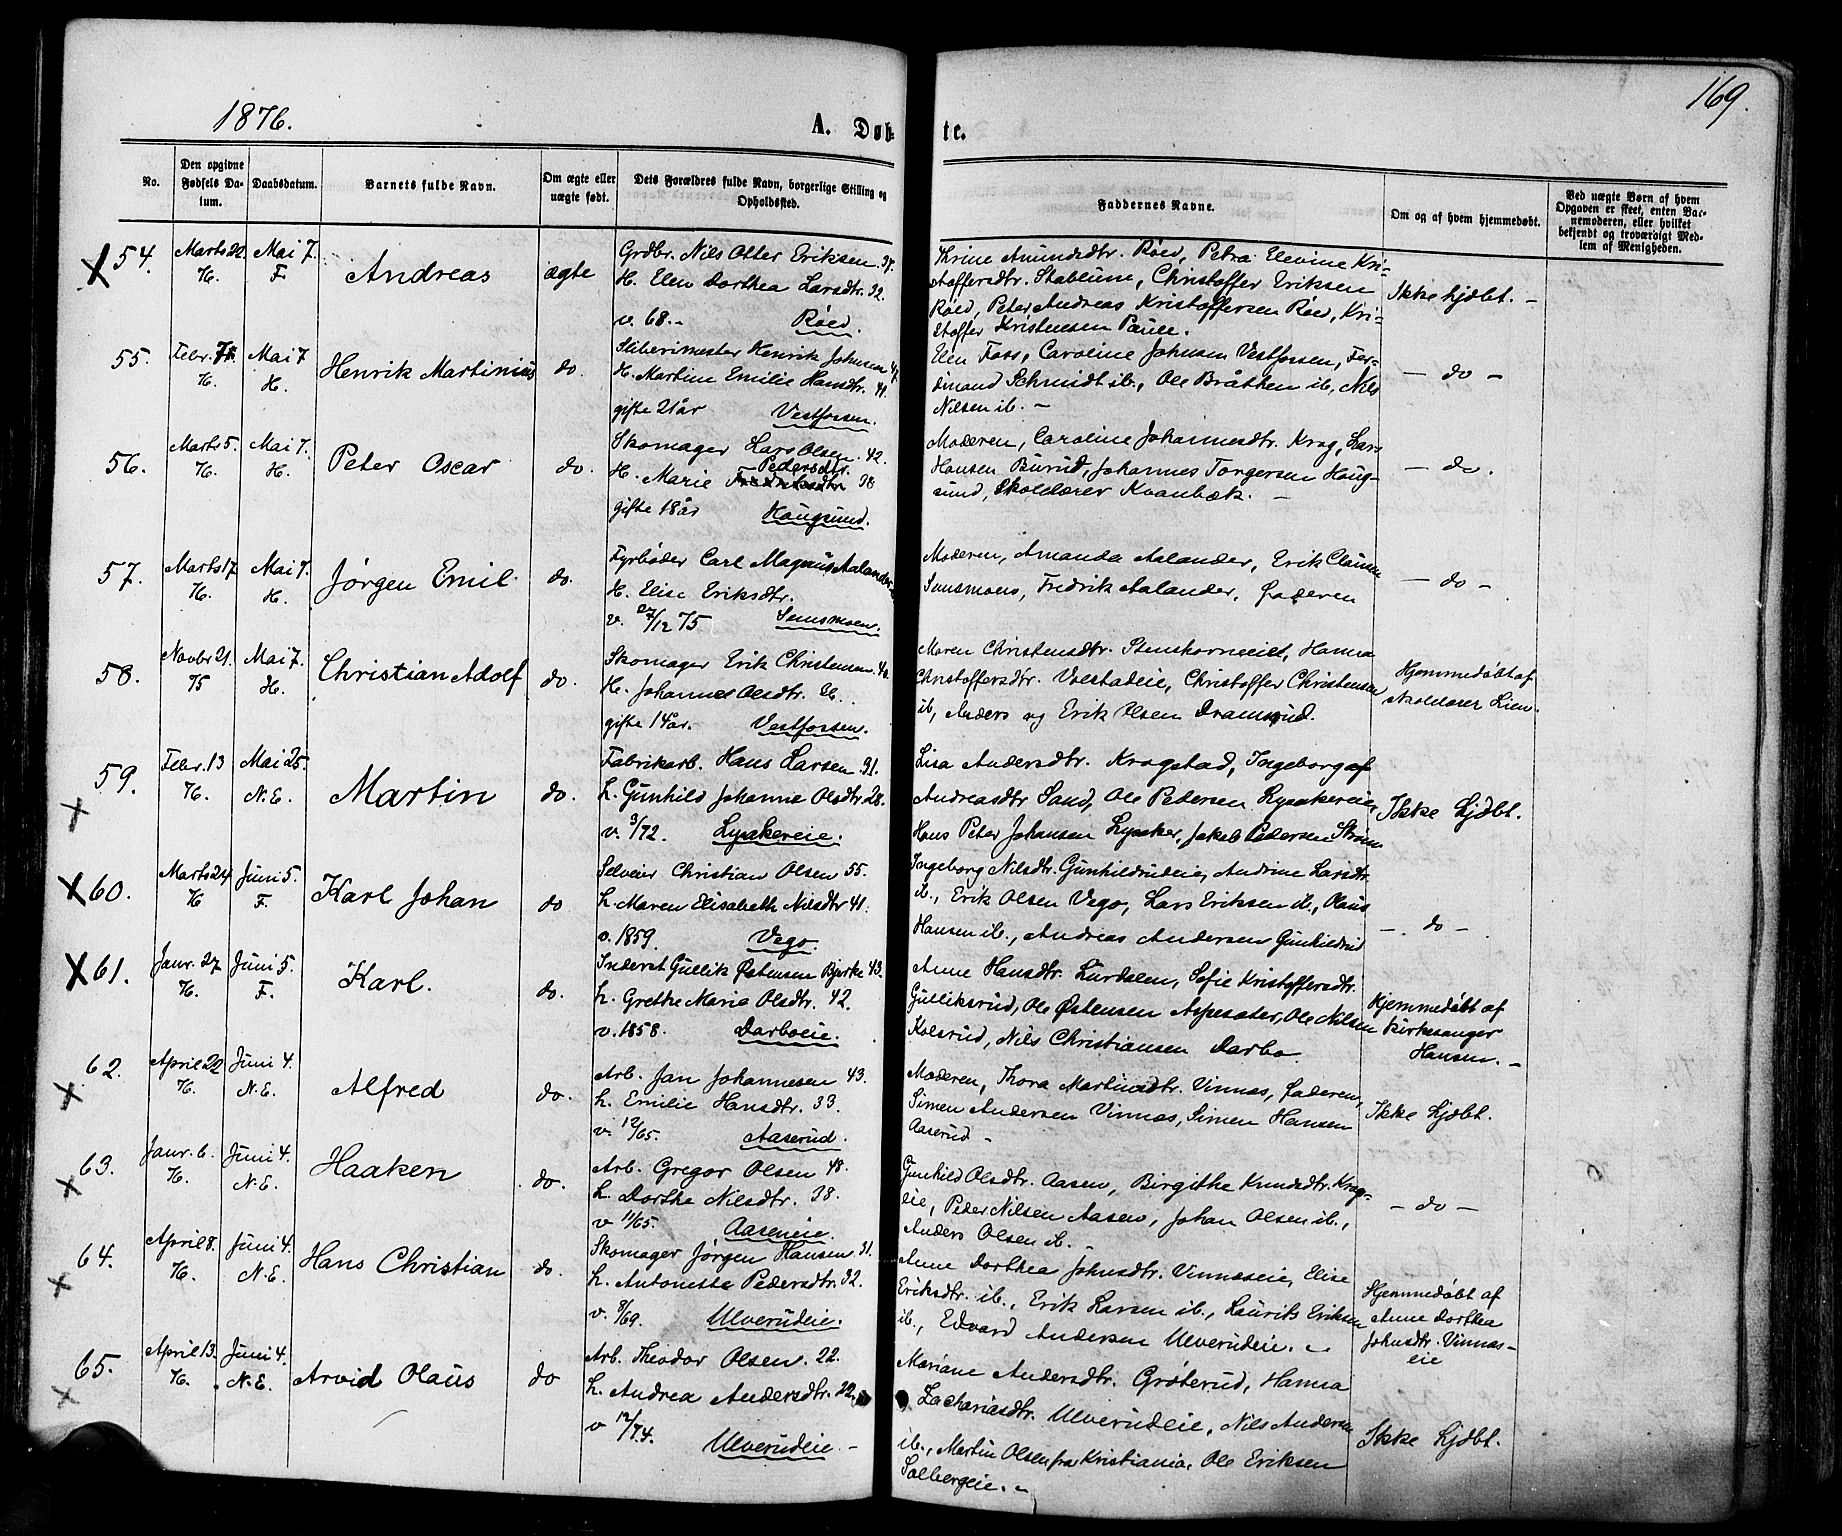 1876.
A. Døb-
te.
169.
No.
Den opgivne
Fødsels Da-
tum.
Daabsdatum.
Barnets fulde Navn.
Om ægte eller
uægte født.
Dets Forældres fulde Navn, borgerlige Stilling og
Opholdssted.
Faddernes Navne.
Om og af hvem hjemmedøbt.
Ved uægte Børn af hvem
Opgaven er skeet, enten Bar-
nemoderen, eller hvilket
bekjendt og troværdigt Med-
lem af Menigheden.
54.
Marts 22.
H.
Mai 7.
F.
Andreas
ægte
Grdbr. Nils Otter Eriksen. 37.
H. Elen Dorthea Larsdtr. 32.
v. 68.- Røed.
Thrine Amundsdtr. Røed, Petra Elevine Kri-
stoffersdtr. Stablum, Christoffer Eriksen
Røed, Peter Andreas Kristoffersen Røed, Kri-
stoffer Kristensen
Ikke hjdbt. -
55.
Febr.
H.
Mai 7
H.
Henrik Martinius
do.
Sliberimester Henrik Johnsen 47.
H. Martine Emilie Hansdtr. 41.
gifte 21 år Vestfossen.
Elen Foss, Caroline Johnsen Vestfossen, Fer-
dinand Schmidt ib., Ole Bråthen ib, Nils
Nilsen ib. -
- do -
56.
Marts 5.
H.
Mai 7.
H.
Peter Oscar
do.
Skomager Lars Olsen. 42.
Pedersdtr.
H. Marie 38
gifte 18 år Hougsund.
Moderen, Caroline Johannesdtr. Krog, Lars
Hansen Burud, Johannes Torgersen Houg-
sund, Skolelærer Kvanbæk. -
- do.
57.
Marts 17
H.
Mai 7.
H.
Jørgen Emil
do.
Fyrbøder Carl Magnus Aalander
H. Elise Eriksdtr.
v. 27/12 75 Semsmoen.
Moderen, Amanda Aalander, Erik Clausen
Semsmoens, Fredrik Aalander, Faderen
- do -
58.
Novbr 21.
75
Mai 7.
H.
Christian Adolf
do.
Skomager Erik Christensen. 40
H. Johannes Olsdtr.
gifte 14 år. Vestfossen.
Maren Christensdtr. Hanna
Christoffersdtr. Christoffer Christensen
ib, Anders og Erik Olsen Dramsrud.
Hjemmedøbt af
Skolelærer Lien.
59.
Febr. 13
H.
Mai 25.
N.E.
Martin
do.
Fabrikarb. Hans Larsen. 31.
h. Gunhild Johanne Olsdtr. 28.
v. 3/72. Lysakereie.
Lisa Andersdtr. Krogstad, Ingeborg
Andreasdtr Sand, Ole Pedersen Lysakereie,
Hans Peter Johansen Lysaker, Jakob Pedersen
Ikke Hjdbt.
60.
Marts 24
H
Juni 5.
F.
Karl Johan
do
Selveier Christian Olsen 55.
h. Maren Elisabeth Nilsdtr 41.
v. 1859. Vego.
Ingeborg Nilsdtr. Gunhildrudeie, Andrine Larsdtr.
ib., Erik Olsen Vego, Lars Eriksen ib., Olaus
Hansen ib., Andreas Andersen Gunhildrud
- do -
61.
Janr. 27
H.
Juni 5.
F.
Karl.
do.
Inderst Gullik Østensen Bjerke 43.
h. Grethe Marie Olsdtr. 42.
v. 1858. Darboeie.
Anne Hansdtr. Lurdalen, Sofie Kristoffersdtr.
Gulliksrud, Ole Østensen Aspesæter, Ole Nilsen
Kolsrud, Nils Christiansen Darbo.
Hjemmedøbt af
Kirkesanger
Hansen. -
62.
April 22
H.
Juni 4.
N.E.
Alfred
do.
Arb. Jan Johannesen 43.
h. Emilie Hansdtr. 33.
v. 12/65. Aaserud.
Moderen, Thora Martinsdtr. Vinnæs, Faderen,
Simen Andersen Vinnæs, Simen Hansen
Aaserud -
Ikke Hjdbt.
63.
Janr. 6.
H.
Juni 4.
N.E.
Haaken
do.
Arb. Gregor Olsen 48.
h. Dorthe Nilsdtr. 38.
v 11/65. Aaseneie.
Gunhild Olsdtr. Aasen, Birgithe Knudsdtr. Krog-
eie, Peder Nilsen Aasen, Johan Olsen ib.,
Anders Olsen ib.
- do -
64.
April 8.
H.
Juni 4.
N.E.
Hans Christian
do.
Skomager Jørgen Hansen 31.
h. Antonette Pedersdtr. 32.
v. 8/69. Ulverudeie.
Anne Dorthea Johnsdtr. Vinnæseie, Elise
Eriksdtr. ib., Erik Larsen ib., Laurits Eriksen
ib., Edvard Andersen Ulverudeie. -
Hjemmedøbt af
Anne Dorthea
Johnsdtr. Vinnæs-
eie
65.
April 13.
H.
Juni 4.
N.E.
Arvid Olaus
do
Arb. Theodor Olsen. 22.
h. Andrea Andersdtr. 22.
v 12/74. Ulverudeie -
Mariane Andersdtr. Grøterud, Hanna
Zachariasdtr. Ulverudeie, Nils Andersen
ib., Martin Olsen fra Kristiania, Ole Eriksen
Solbergeie. -
Ikke Hjdbt.